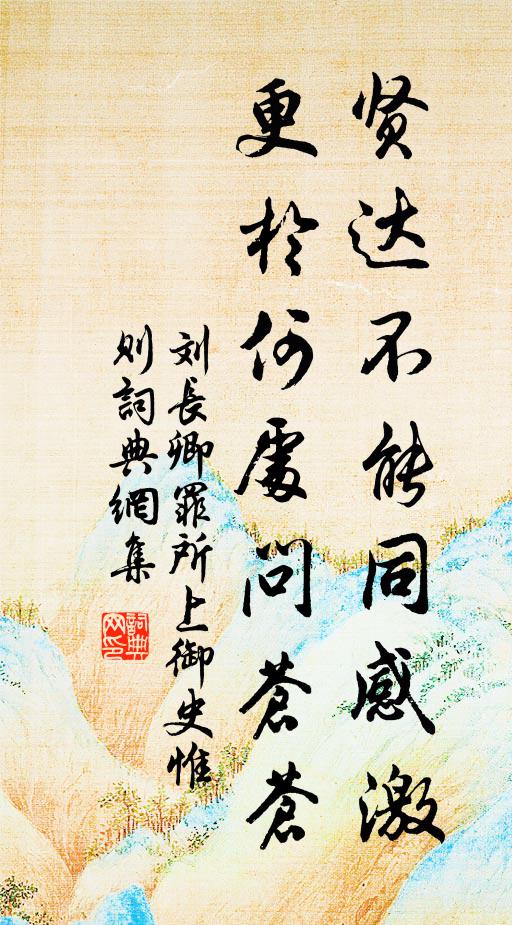 贤达不能同感激
更於何處问蒼蒼
刘長卿罪所上御史惟
则詞典網集
詞典网印